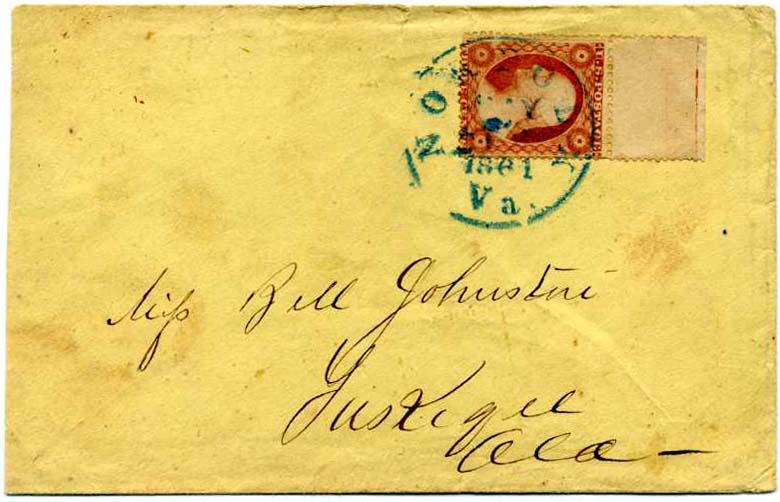 NOR
1861
Va.
Miss Bell Johnston
Tuskegee
Ala